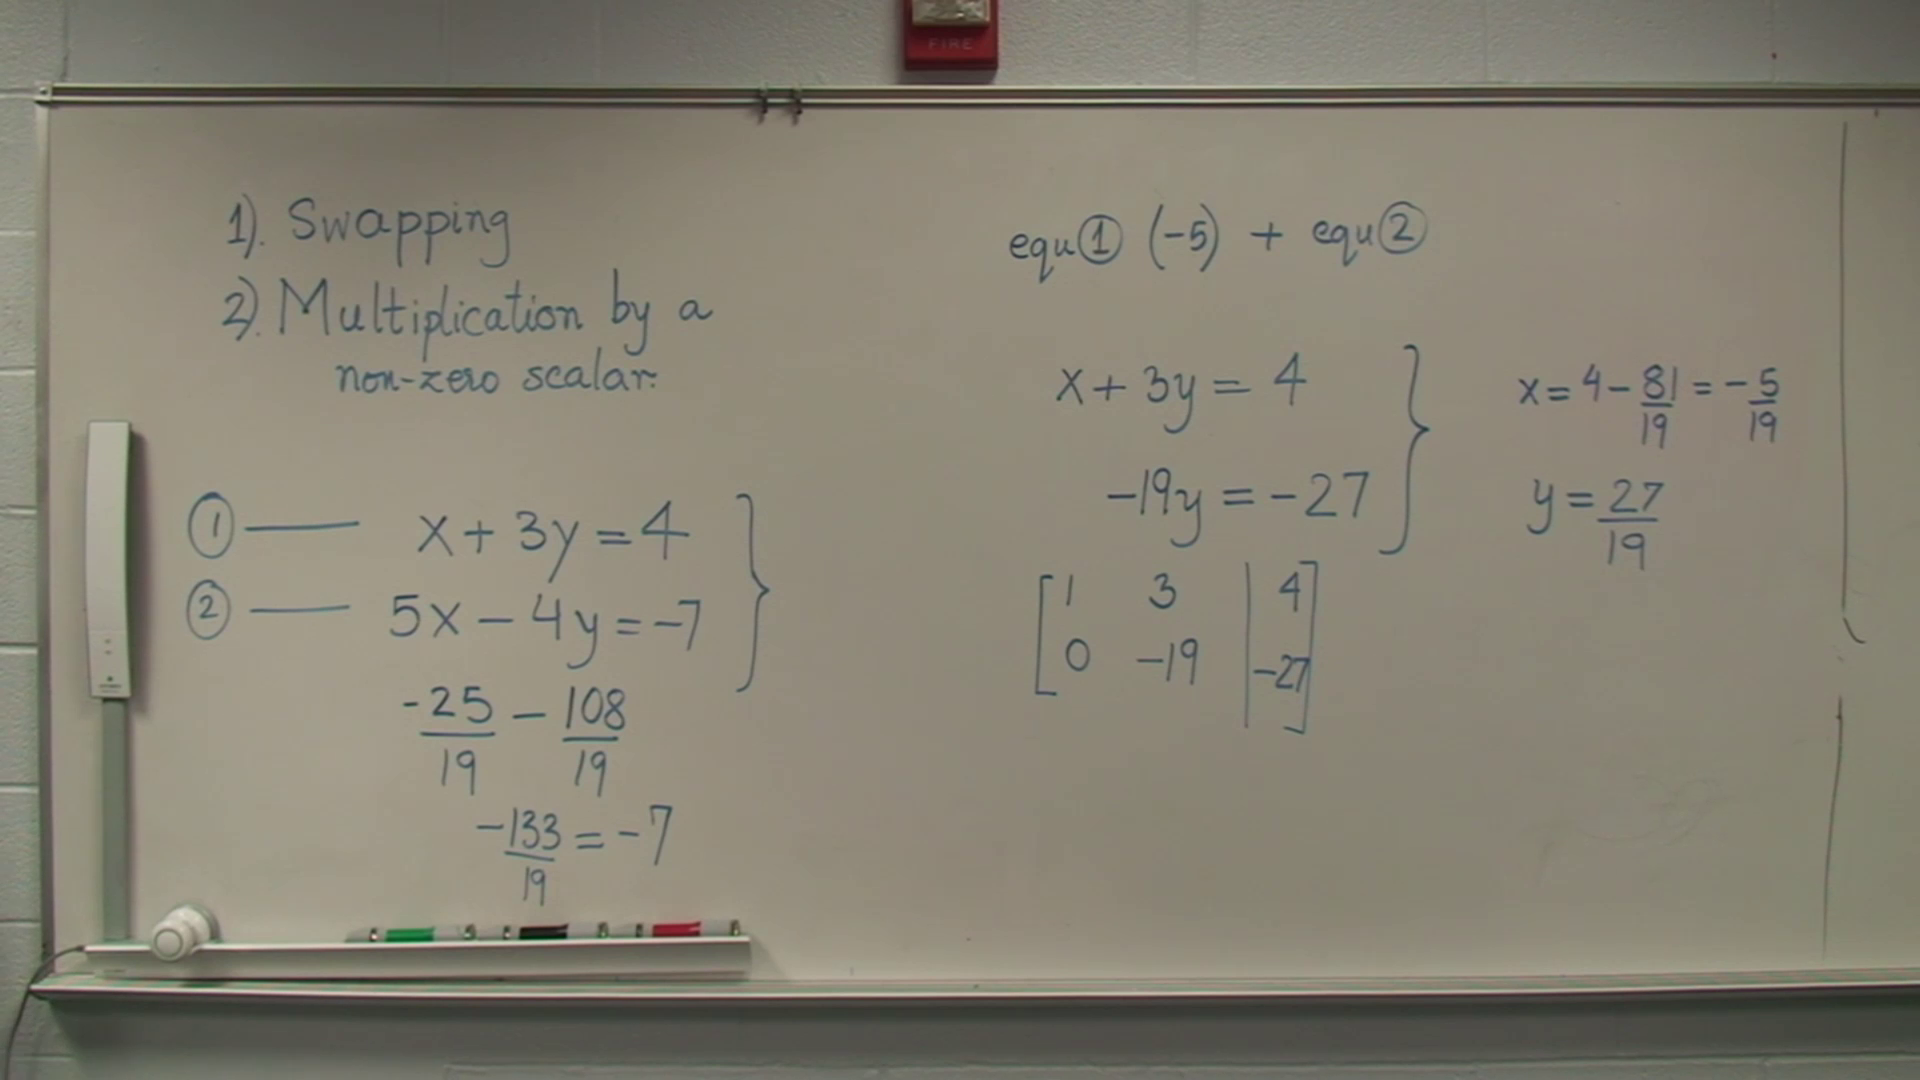 FIRE
1). Swapping
2). Multiplication by a
non-zero scalar.
① — x + 3y = 4
② — 5x – 4y = –7
-25/19 – 108/19
-133/19 = -7
equ① (-5) + equ②
x + 3y = 4
-19y = -27
[1 3 | 4]
[0 -19 | -27]
x = 4 - 81/19 = -5/19
y = 27/19